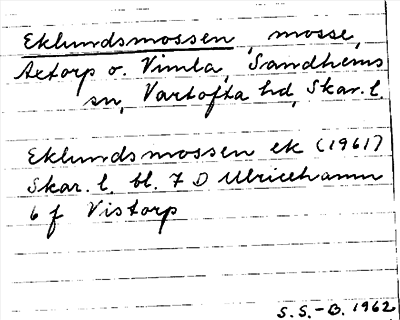 Eklundsmossen, mosse,
Axtorp o. Vimla, Sandhems
sn, Vartofta hd, Skar. l.
Eklundsmossen ek (1961)
Skar. l. bl. 7 D Ulricehamn
6 f Vistorp
S.S.-B. 1962